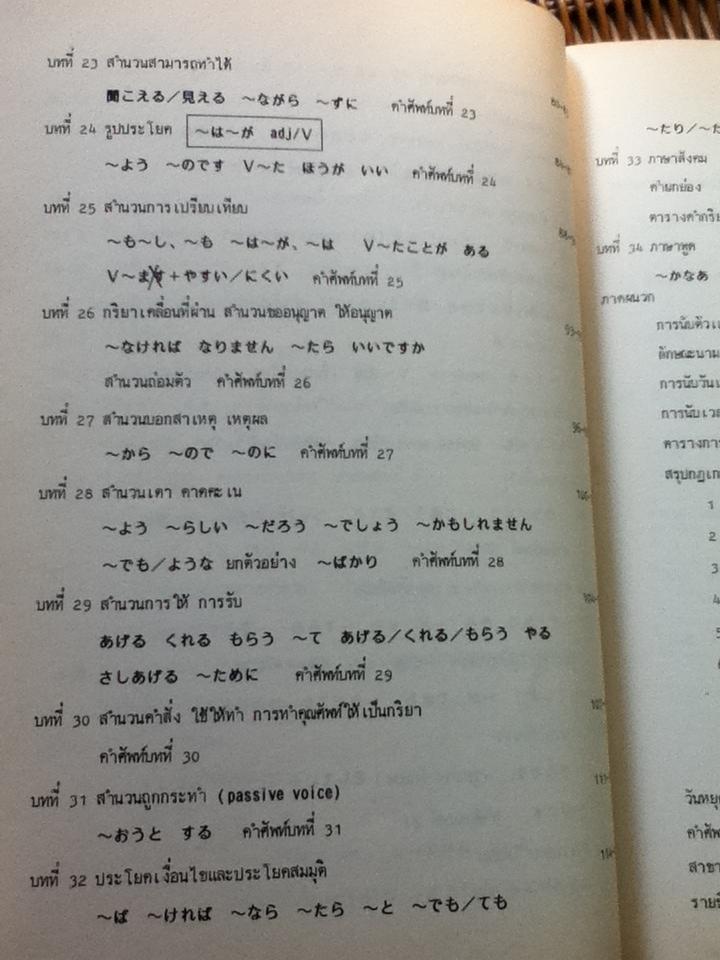 บทที่ 23 สำนวนสามารถทำได้
聞こえる/見える ~ながら ~ずに คำศัพท์บทที่ 23
บทที่ 24 รูปประโยค ~は~が adj/V
~よう ~のです V~た ほうが いい คำศัพท์บทที่ 24
บทที่ 25 สำนวนการเปรียบเทียบ
~も~し、~も ~は~が、~は V~たことが ある
V~ます+やすい/にくい คำศัพท์บทที่ 25
บทที่ 26 กริยาเคลื่อนที่ผ่าน สำนวนขออนุญาต ให้อนุญาต
~なければ なりません ~たら いいですか
สำนวนถ่อมตัว คำศัพท์บทที่ 26
บทที่ 27 สำนวนบอกสาเหตุ เหตุผล
~から ~ので ~のに คำศัพท์บทที่ 27
บทที่ 28 สำนวนเดา คาดคะเน
~よう ~らしい ~だろう ~でしょう ~かもしれません
~でも/ような ยกตัวอย่าง ~ばかり คำศัพท์บทที่ 28
บทที่ 29 สำนวนการให้ การรับ
あげる くれる もらう ~て あげる/くれる/もらう やる
さしあげる ~ために คำศัพท์บทที่ 29
บทที่ 30 สำนวนคำสั่ง ใช้ให้ทำ การทำคุณศัพท์ให้เป็นกริยา
คำศัพท์บทที่ 30
บทที่ 31 สำนวนถูกกระทำ (passive voice)
~おうと する คำศัพท์บทที่ 31
บทที่ 32 ประโยคเงื่อนไขและประโยคสมมุติ
~ば ~ければ ~なら ~たら ~と ~でも/ても
~たり/~た
บทที่ 33 ภาษาสังคม
คำยกย่อง
ตารางคำกริ
บทที่ 34 ภาษาพูด
~かなあ
ภาคผนวก
การนับตัวเ
ลักษณะนาม
การนับวัน
การนับเว
ตารางกา
สรุปกฎเก
1
2
3
4
วันหยุ
คำศั
สาขา
รายชื่